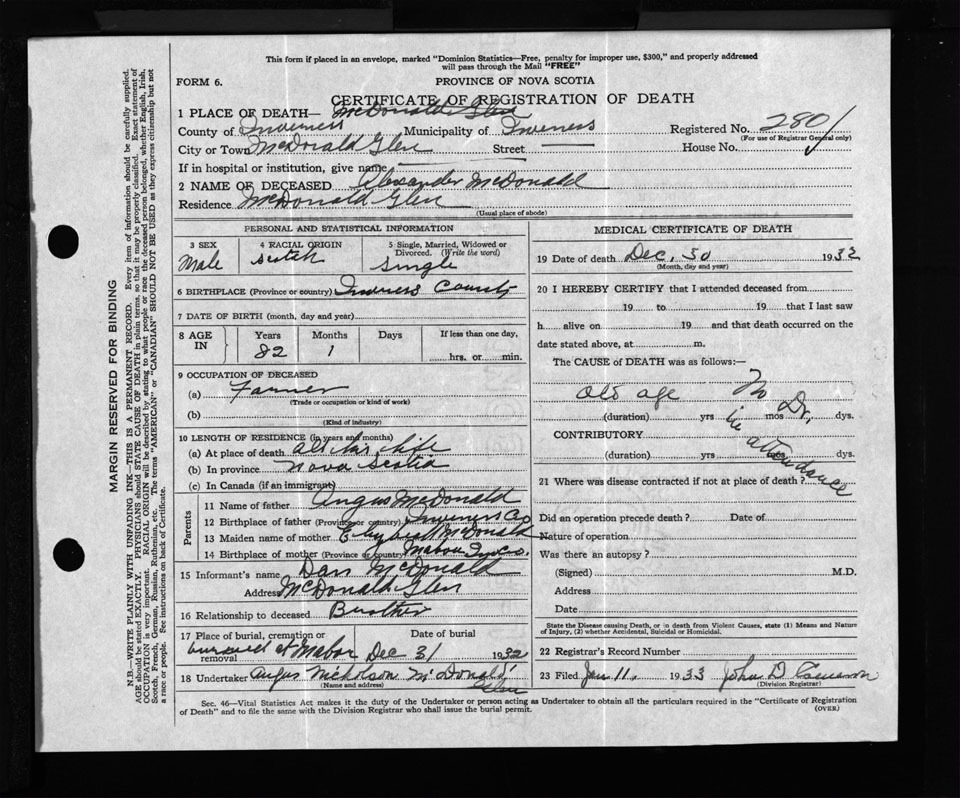 This form if placed in an envelope, marked "Dominion Statistics—Free, penalty for improper use, $300," and properly addressed
will pass through the Mail "FREE"
FORM 6.
PROVINCE OF NOVA SCOTIA
CERTIFICATE OF REGISTRATION OF DEATH
1 PLACE OF DEATH— McDonald Glen
County of Inverness Municipality of Inverness Registered No. 2801
(For use of Registrar General only)
City or Town McDonald Glen Street House No.
If in hospital or institution, give name
2 NAME OF DECEASED Alexander McDonald
Residence McDonald Glen
(Usual place of abode)
PERSONAL AND STATISTICAL INFORMATION
3 SEX
Male
4 RACIAL ORIGIN
scotch
5 Single, Married, Widowed or
Divorced. (Write the word)
Single
6 BIRTHPLACE (Province or country) Inverness County
7 DATE OF BIRTH (month, day and year)
8 AGE
IN
Years
82
Months
1
Days
If less than one day,
hrs. or min.
9 OCCUPATION OF DECEASED
(a) Farmer
(Trade or occupation or kind of work)
(b)
(Kind of industry)
10 LENGTH OF RESIDENCE (in years and months)
(a) At place of death all his life
(b) In province Nova Scotia
(c) In Canada (if an immigrant)
Parents
11 Name of father Angus McDonald
12 Birthplace of father (Province or country) Inverness Co
13 Maiden name of mother McDonald
14 Birthplace of mother (Province or country) Mabou Inv Co.
15 Informant's name Dan McDonald
Address McDonald Glen
16 Relationship to deceased Brother
17 Place of burial, cremation or
removal at Mabou
Date of burial
Dec 31 1932
18 Undertaker Angus Nicholson McDonald
Glen
(Name and address)
MEDICAL CERTIFICATE OF DEATH
19 Date of death Dec, 30 1932
(Month, day and year)
20 I HEREBY CERTIFY that I attended deceased from
19 to 19 that I last saw
h alive on 19 and that death occurred on the
date stated above, at m.
The CAUSE of DEATH was as follows:—
old age No Dr,
in attendance
(duration) yrs mos dys.
CONTRIBUTORY
(duration) yrs mos dys.
21 Where was disease contracted if not at place of death?
Did an operation precede death? Date of
Nature of operation
Was there an autopsy?
(Signed) M.D.
Address
Date
State the Disease causing Death, or in death from Violent Causes, state (1) Means and Nature
of Injury, (2) whether Accidental, Suicidal or Homicidal.
22 Registrar's Record Number
23 Filed Jan 11, 1933 John D Cameron
(Division Registrar)
Sec. 46—Vital Statistics Act makes it the duty of the Undertaker or person acting as Undertaker to obtain all the particulars required in the "Certificate of Registration
of Death" and to file the same with the Division Registrar who shall issue the burial permit.
(OVER)
MARGIN RESERVED FOR BINDING
N.B. WRITE PLAINLY WITH UNFADING INK—THIS IS A PERMANENT RECORD. Every item of information should be carefully supplied.
AGE should be stated EXACTLY. PHYSICIANS should STATE CAUSE OF DEATH in plain terms, so that it may be properly classified. Exact statement of
OCCUPATION is very important. RACIAL ORIGIN will be described by stating to what people or race the deceased person belonged, whether English, Irish,
Scotch, French, German, Russian, Ruthenian, etc. The terms "AMERICAN" or "CANADIAN" SHOULD NOT BE USED as they express citizenship but not
a race or people. See instructions on back of Certificate.